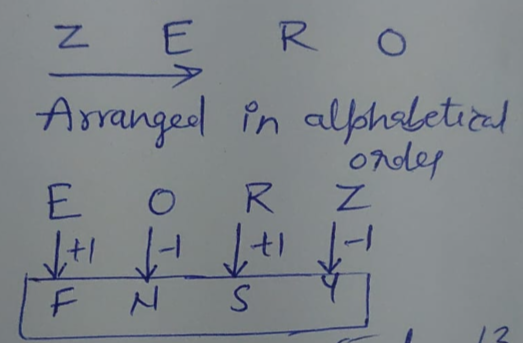 Z E R O
Arranged in alphabetical
order
E O R Z
+1 -1 +1 -1
F N S Y